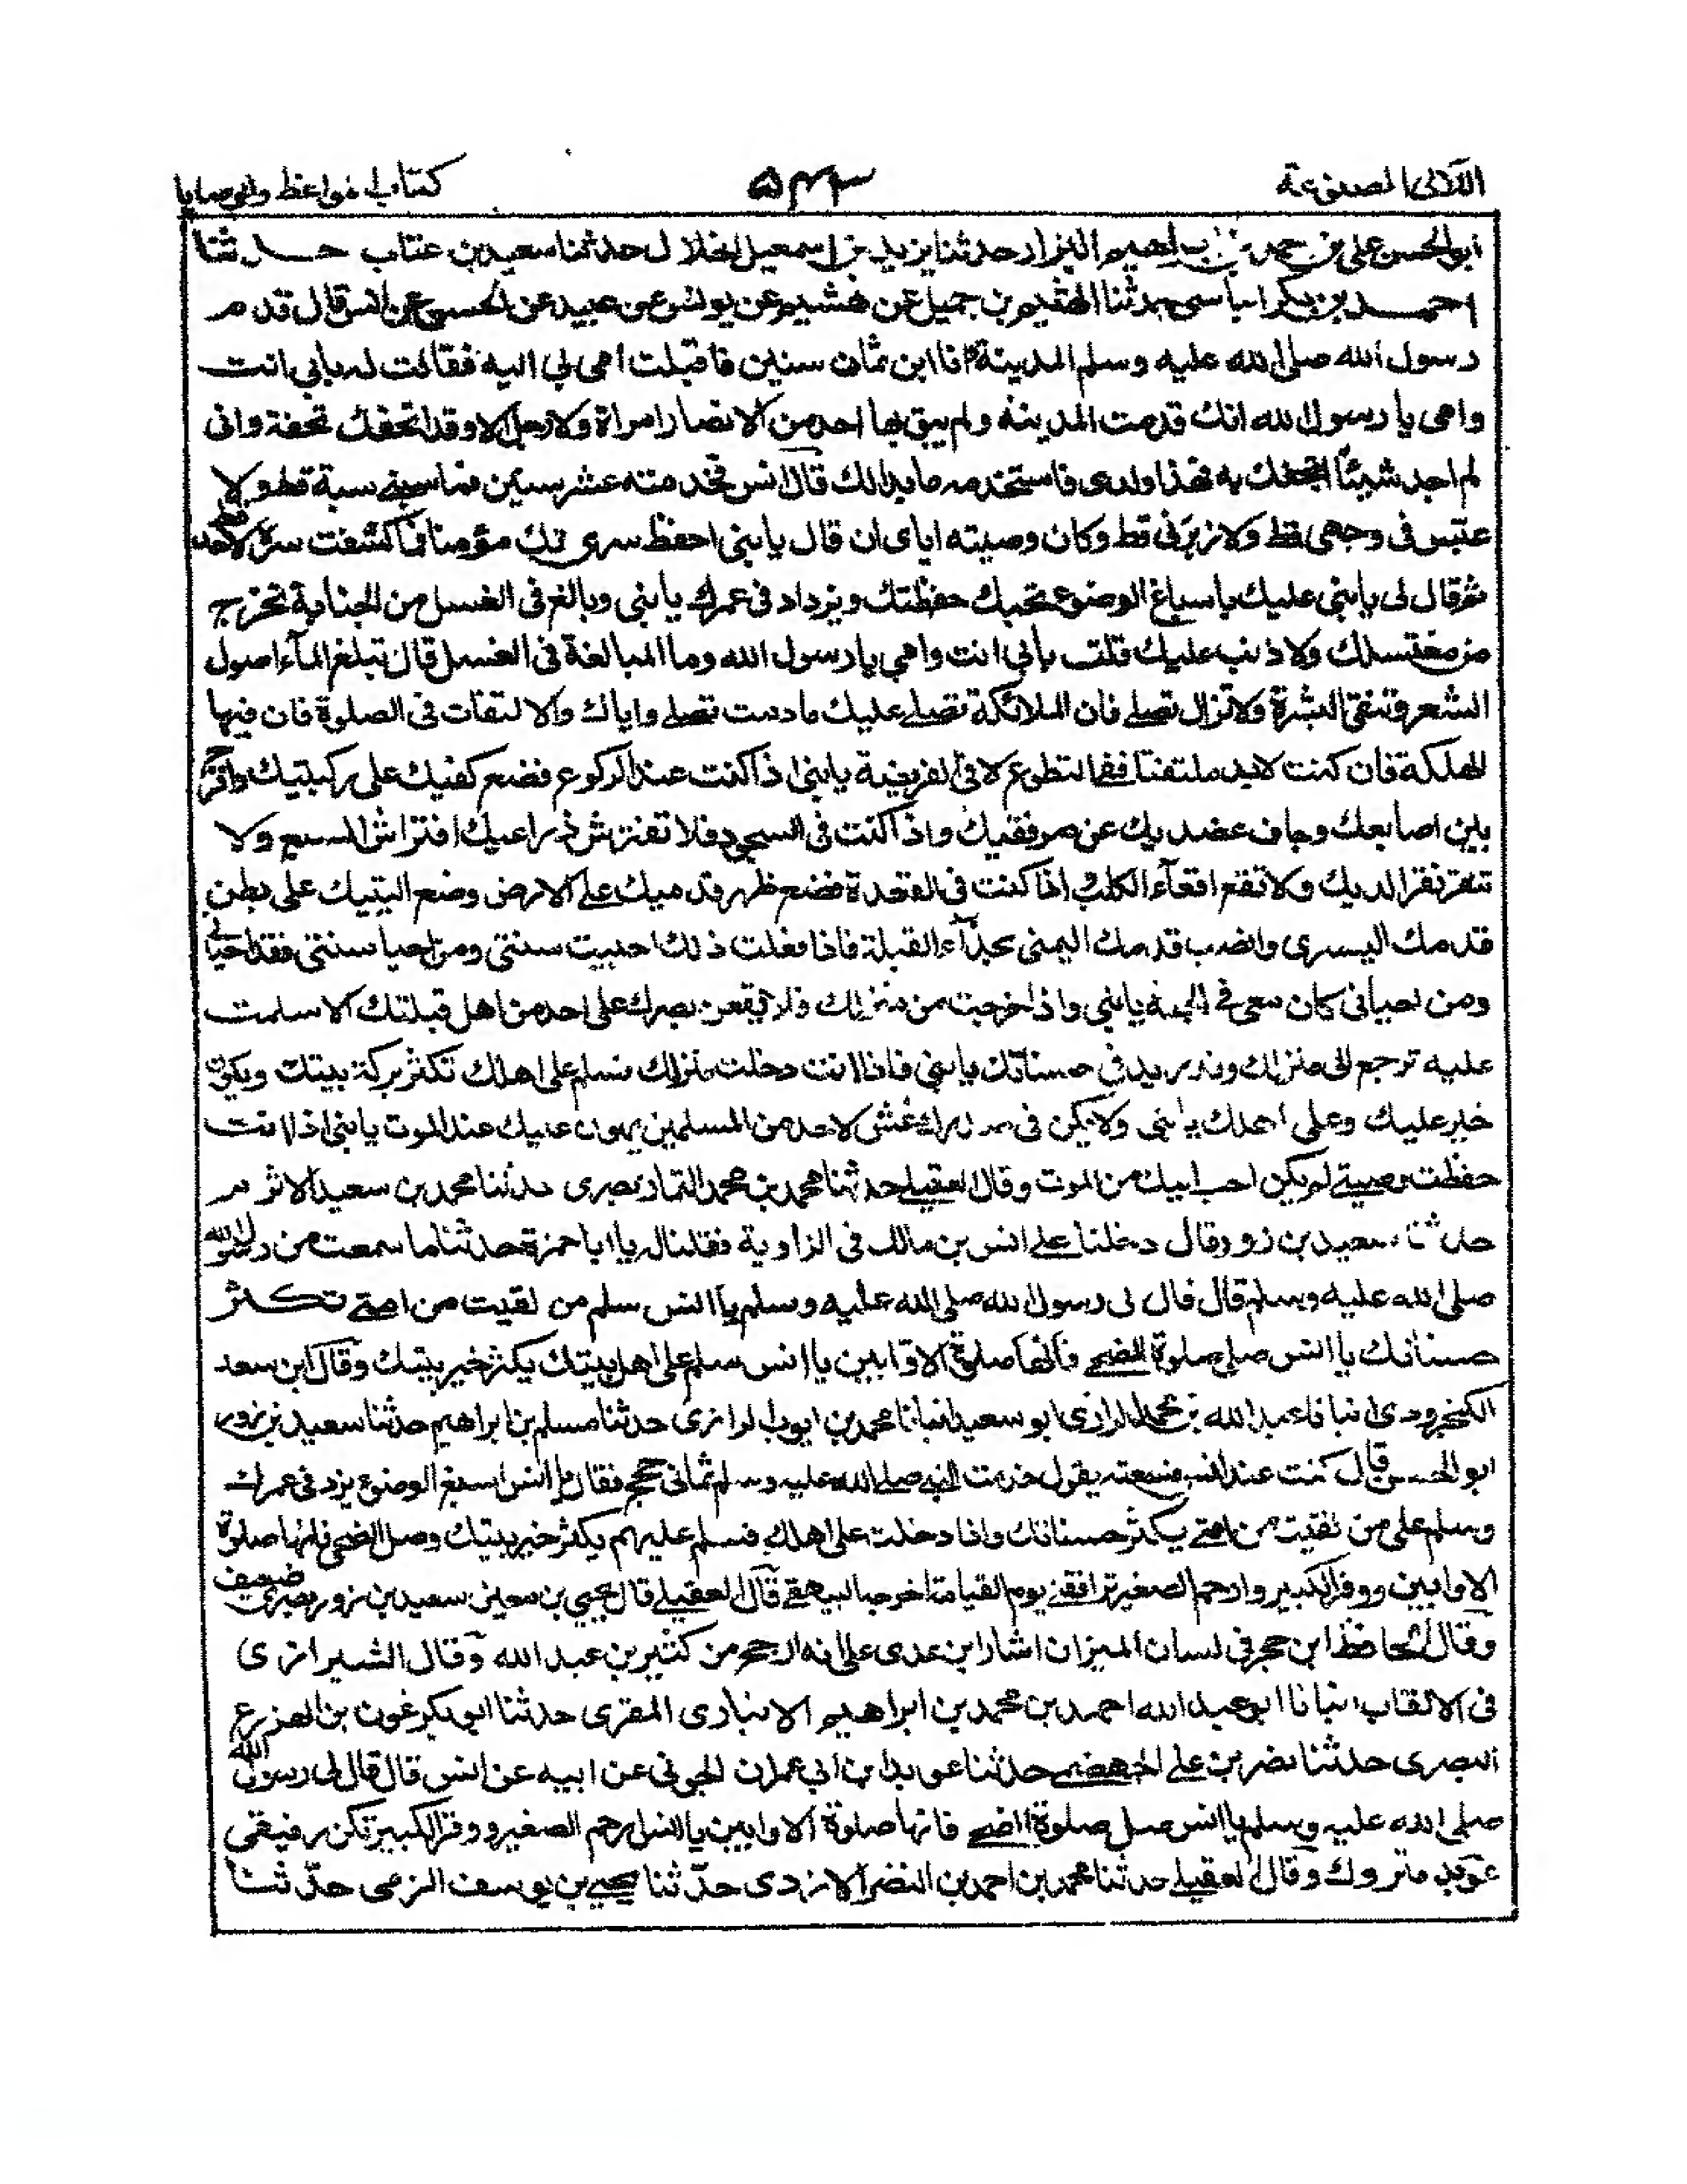 اللآلئ المصنوعة
۵۴۳
كتاب المواعظ والوصايا
ابو الحسن على بن محمد بن ابراهيم البزار حدثنا يزيد بن اسمعيل الخلال حدثنا سعيد بن عتاب حدثنا
احمد بن بكر البالسى حدثنا الهيثم بن جميل عن هشيم عن يونس عن عبيد عن الحسن عن انس قال قدم
رسول الله صلى الله عليه وسلم المدينة وانا ابن ثمان سنين فاقبلت امى بى اليه فقالت له بأبى انت
وامى يا رسول الله انك قدمت المدينة ولم يبق بها احد من الانصار امراة ولا رجل الا وقد اتحفك تحفة وانى
لم اجد شيئا اتحفك به فهذا ولدى فاستخدمه ما بدا لك قال انس فخدمته عشر سنين فما سبنى سبة قط ولا
عبس فى وجهى قط ولا زبرنى قط وكان وصيته اياى ان قال يا بنى احفظ سرى تك مؤمنا فما كشفت سره لاحد قط
ثم قال لى يا بنى عليك باسباغ الوضوء تحبك حفظتك ويزداد فى عمرك يا بنى وبالغ فى الغسل من الجنابة تخرج
من مغتسلك ولا ذنب عليك قلت بأبى انت وامى يا رسول الله وما المبالغة فى الغسل قال تبلغ المآء اصول
الشعر وتنقى البشرة ولا تزال تصلى فان الملائكة تصلى عليك ما دمت تصلى واياك والالتفات فى الصلوة فان فيها
الهلكة فان كنت لابد ملتفتا ففى التطوع لا فى الفريضة يا بنى اذا كنت عند الركوع فضع كفيك على ركبتيك وافرج
بين اصابعك وجاف عضديك عن مرفقيك واذا كنت فى السجود فلا تفترش ذراعيك افتراش السبع ولا
تنقر نقر الديك ولا تقع اقعآء الكلب واذا كنت فى القعدة فضع ظهر قدميك على الارض وضع اليتيك على بطن
قدمك اليسرى وانصب قدمك اليمنى بحذآء القبلة فاذا فعلت ذلك احييت سنتى ومن احيا سنتى فقد احيانى
ومن احيانى كان معى فى الجنة يا بنى واذا خرجت من منزلك فلا يقعن بصرك على احد من اهل قبلتك الا سلمت
عليه ترجع الى منزلك وقد زيد فى حسناتك يا بنى فاذا انت دخلت منزلك فسلم على اهلك تكثر بركة بيتك ويكون
خير عليك وعلى اهلك يا بنى ولا يكن فى صدرك غش لاحد من المسلمين يهون عليك عند الموت يا بنى اذا انت
حفظت وصيتى لم يكن احب اليك من الموت وقال العقيلى حدثنا محمد بن محمد التمار بصرى حدثنا محمد بن سعيد الاثرم
حدثنا سعيد بن زور قال دخلنا على انس بن مالك فى الزاوية فقلنا له يا ابا حمزة حدثنا ما سمعت من رسول الله
صلى الله عليه وسلم قال قال لى رسول الله صلى الله عليه وسلم يا انس سلم من لقيت من امتى تكثر
حسناتك يا انس صلى صلوة الضحى فانها صلوة الاوابين يا انس سلم على اهل بيتك يكثر خير بيتك وقال ابن سعد
الكنجرودى انبانا عبد الله بن محمد الرازى ابو سعيد انبانا محمد بن ايوب الرازى حدثنا مسلم بن ابراهيم حدثنا سعيد بن زور
ابو الحسن قال كنت عند انس فسمعته يقول خدمت النبى صلى الله عليه وسلم ثمانى حجج فقال يا انس اسبغ الوضوء يزد فى عمرك
وسلم على من لقيت من امتى يكثر حسناتك واذا دخلت على اهلك فسلم عليهم يكثر خير بيتك وصل الضحى فانها صلوة
الاوابين ووقر الكبير وارحم الصغير ترافقنى يوم القيامة اخرجه البيهقى قال العقيلى قال يحيى بن معين سعيد بن زور بصرى ضعيف
وقال الحافظ ابن حجر فى لسان الميزان اشار ابن عدى على انه ارجح من كثير بن عبد الله وقال الشيرازى
فى الالقاب انبانا ابو عبد الله احمد بن محمد بن ابراهيم الانبارى المقرى حدثنا ابو بكر غون بن المزرع
البصرى حدثنا نضر بن على الجهضمى حدثنا عوبد بن ابى عمران الجونى عن ابيه عن انس قال قال لى رسول الله
صلى الله عليه وسلم يا انس صل صلوة الضحى فانها صلوة الاوابين يا انس ارحم الصغير ووقر الكبير تكن رفيقى
عوبد متروك وقال العقيلى حدثنا محمد بن احمد بن النضر الازدى حدثنا يحيى بن يوسف الزمى حدثنا